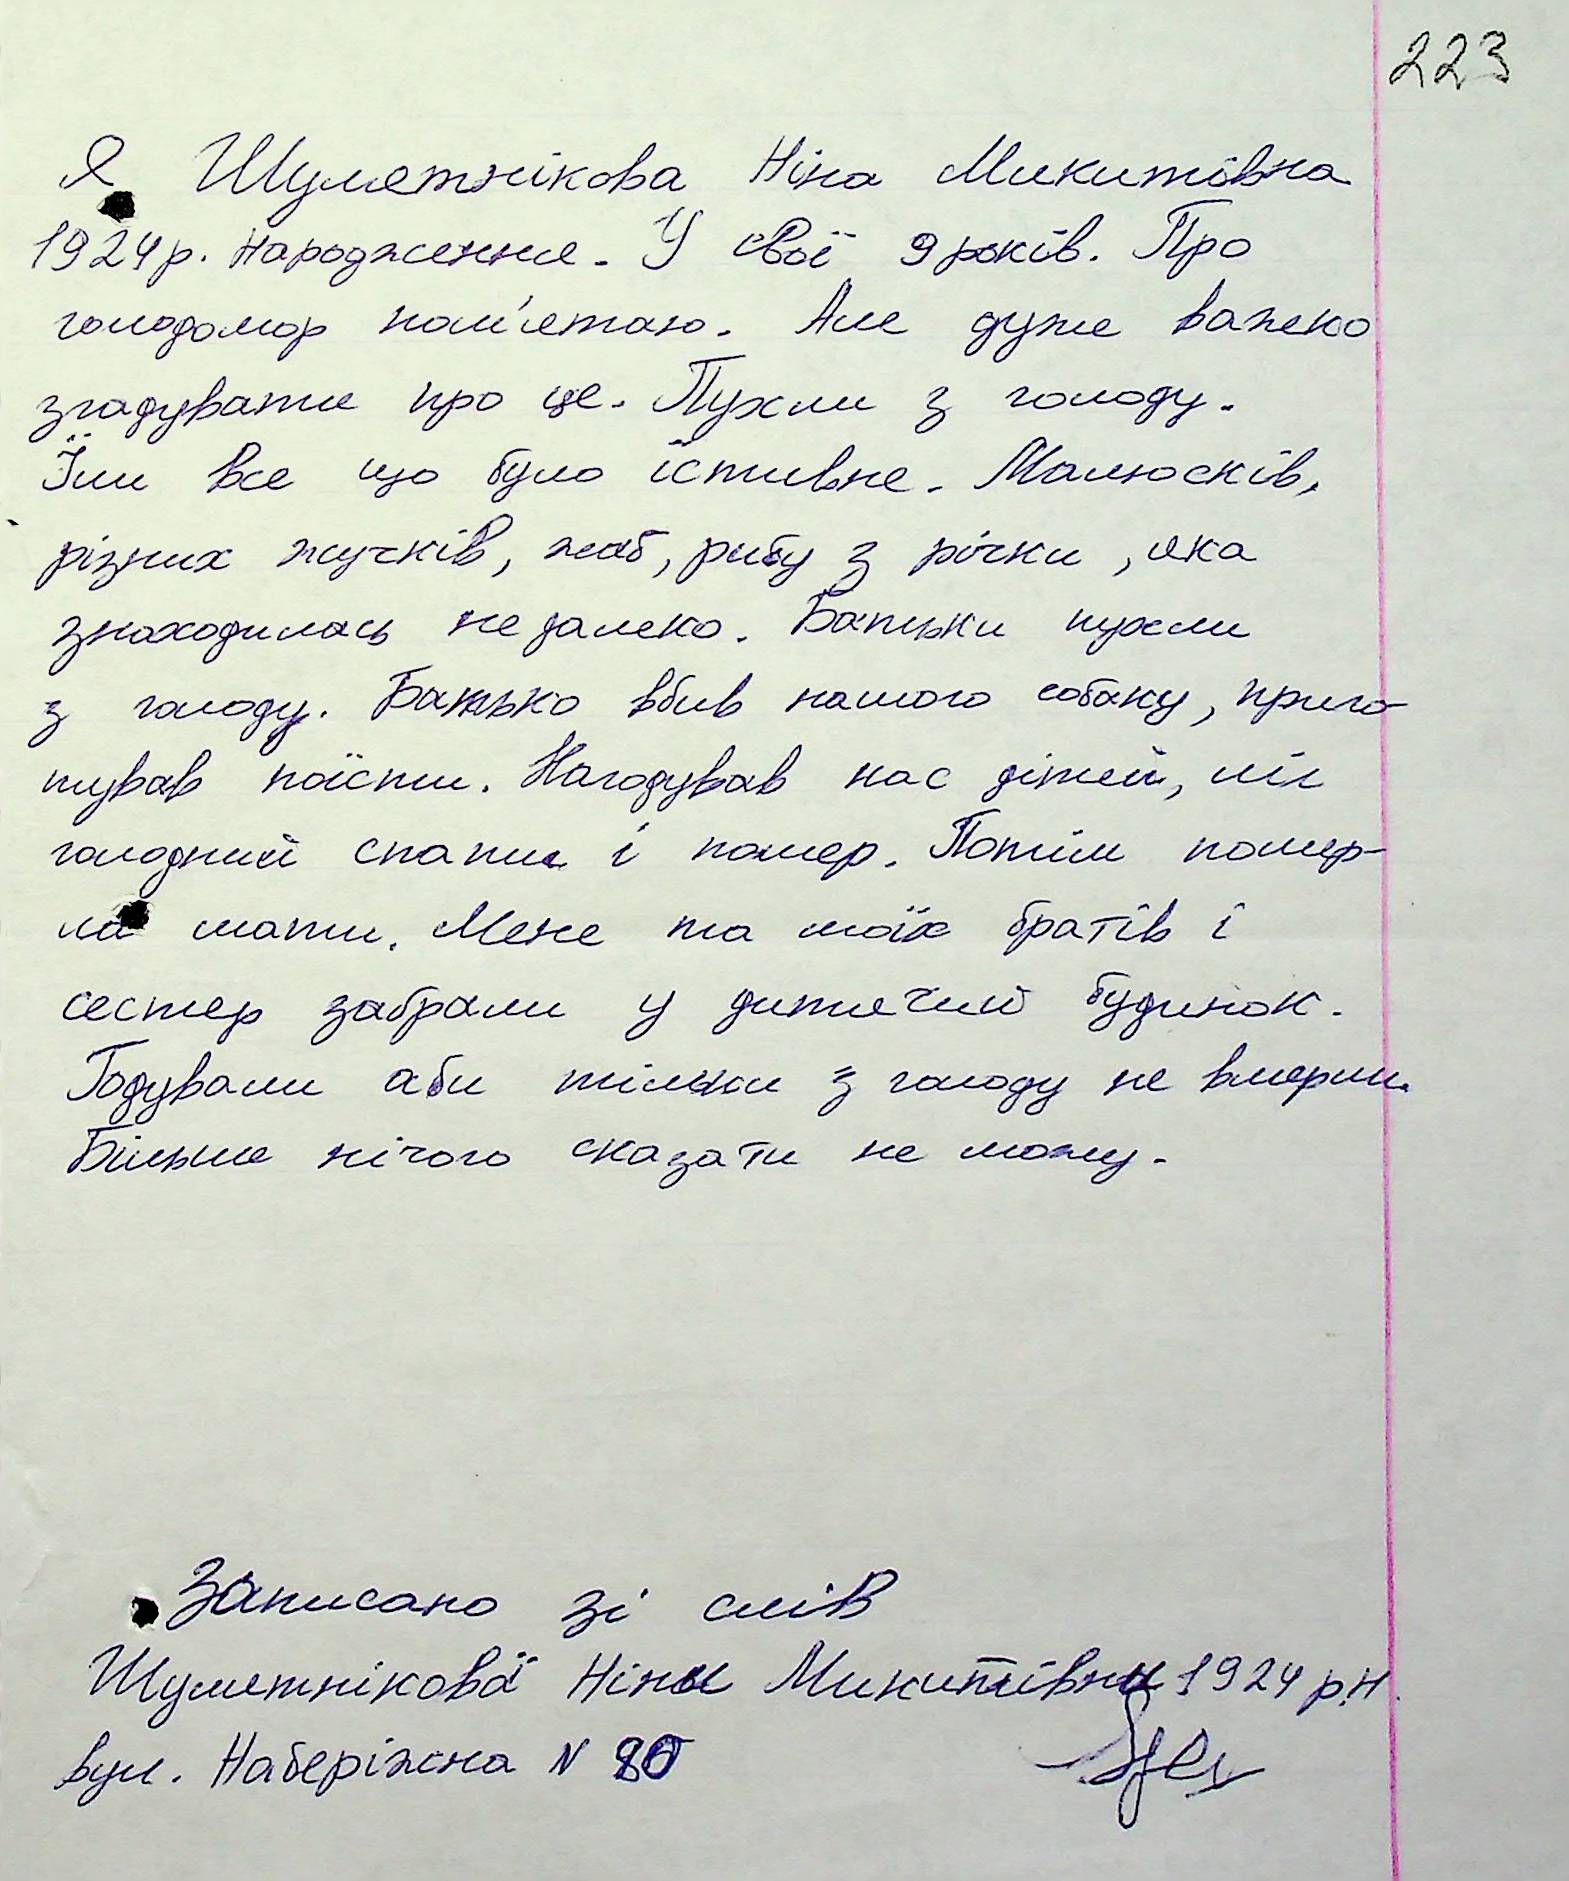 223
Я Шулятнікова Ніна Микитівна
1924р. Народження. У свої 9 років. Про
голодомор пам'ятаю. Але дуже важко
згадувати про це. Пухли з голоду.
Їли все що було їстивне. Малюсків,
різних жучків, жаб, рибу з річки, яка
знаходилась не далеко. Батьки пухли
з голоду. Батько вбив нашого собаку, приго-
тував поїсти. Нагодував нас дітей, ліг
голодний спати і помер. Потім помер-
ла мати. Мене та моїх братів і
сестер забрали у дитячий будинок.
Годували аби тільки з голоду не вмерли.
Більше нічого сказати не можу.
Записано зі слів
Шулятнікової Ніни Микитівни 1924 р.н.
вул. Набережна N 80